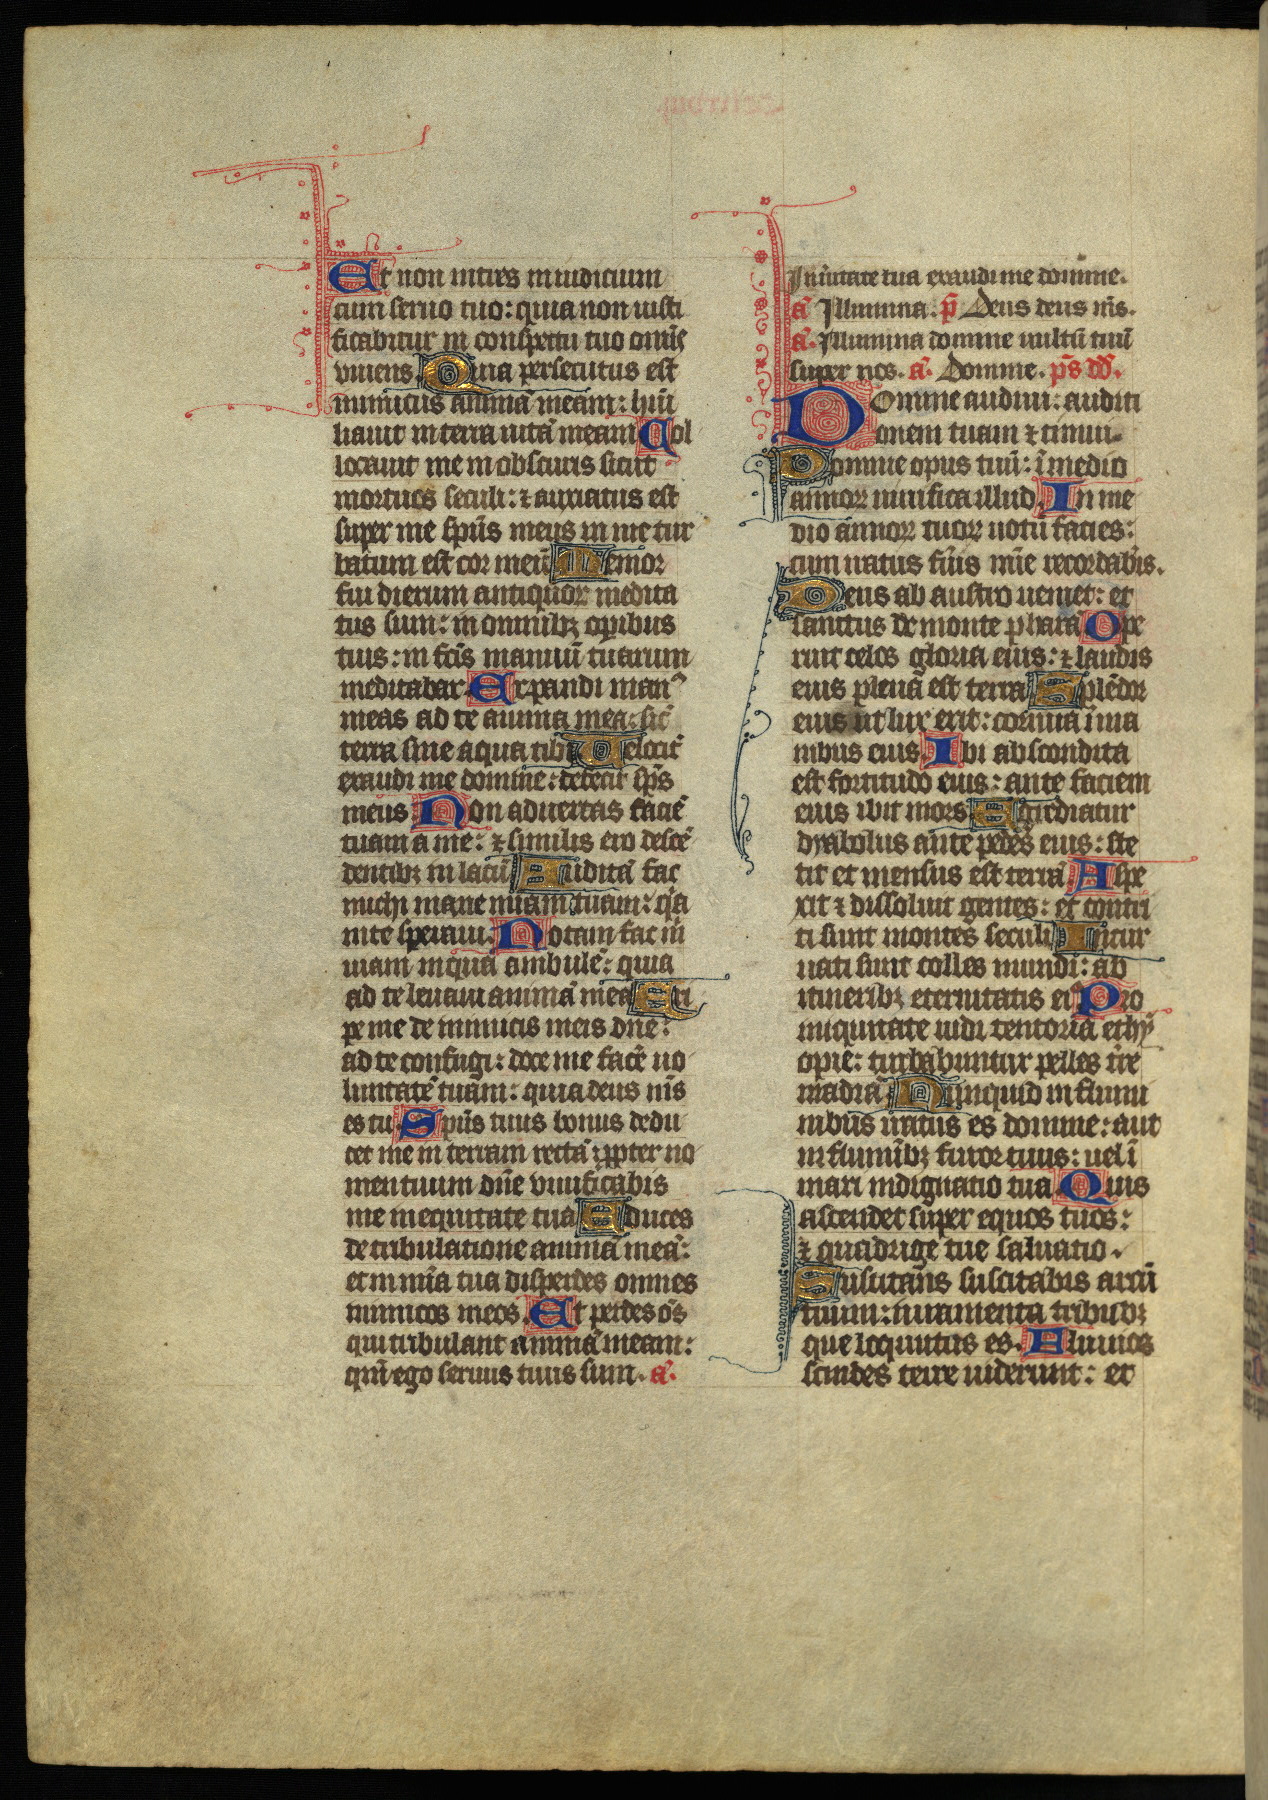 Et non intres in iudicium
cum seruo tuo: quia non iusti
ficabitur in conspectu tuo om̄is
viuens. Quia persecutus est
inimicus animā meam: hūi
liauit in terra uitā meam Col
locauit me in obscuris sicut
mortuos seculi: ⁊ anxiatus est
super me sp̄us meus in me tur
batum est cor meū Memor
fui dierum antiquoꝝ medita
tus sum: in omnibꝫ operibus
tuis: in fc̄is manuū tuarum
meditabar. Expandi manꝰ
meas ad te anima mea: sic̄
terra sine aqua tibi Velocit̄
exaudi me domine: defecit sp̄s
meus Non aduertas faciē
tuam a me: ⁊ similis ero descē
dentibꝫ in lacū Auditā fac
michi mane mīam tuam: q̄a
in te speraui. Notam fac m̄
uiam in qua ambulē: quia
ad te leuaui animā meā Eri
pe me de inimicis meis dn̄e:
ad te confugi: doce me facē uo
luntatē tuam: quia deus m̄s
es tu Sp̄us tuus bonus dedu
cet me in terram rectā ꝓpter no
men tuum dn̄e viuificabis
me in equitate tua Educes
de tribulatione animā meā:
et in mīa tua disperdes omnes
inimicos meos. Et perdes om̄s
qui tribulant animā meam:
qm̄ ego seruus tuus sum. a̅.
In ūitate tua exaudi me domine.
a̅ Illumina. p̄ Deus deus m̄s.
a̅. Illumina domine uultū tuū
super nos. a̅. Domine. p̄s dd̄.
Domine audiui: auditi
onem tuam ⁊ timui.
Domine opus tuū: ī medio
annoꝝ uiuifica illud. In me
dio annoꝝ tuoꝝ notū facies:
cum iratus fūis mīe recordab̄is.
Deus ab austro ueniet: et
sanctus de monte pharā Ope
ruit celos gloria eius: ⁊ laudis
eius plena est terra Splēdor
eius ut lux erit: cornua ī ma
nibus eius. Ibi abscondita
est fortitudo eius: ante faciem
eius ibit mors Egrediatur
dyabolus ante pedes eius: ste
tit et mensus est terrā. Aspe
xit ⁊ dissoluit gentes: et contri
ti sunt montes seculi Incur
uati sunt colles mundi: ab
itineribꝫ eternitatis eiꝰ Pro
iniquitate uidi tentoria ethy
opie: turbabuntur pelles tr̄e
madiā. Nunquid in flumi
nibus iratus es domine: aut
in fluminibꝫ furor tuus: uel ī
mari indignatio tua Quis
ascendet super equos tuos:
⁊ quadrige tue saluatio.
Suscitans suscitabis arcū
tuum: iuramenta tribubꝫ
que locutus es. Fluuios
scindes terre uiderunt: et